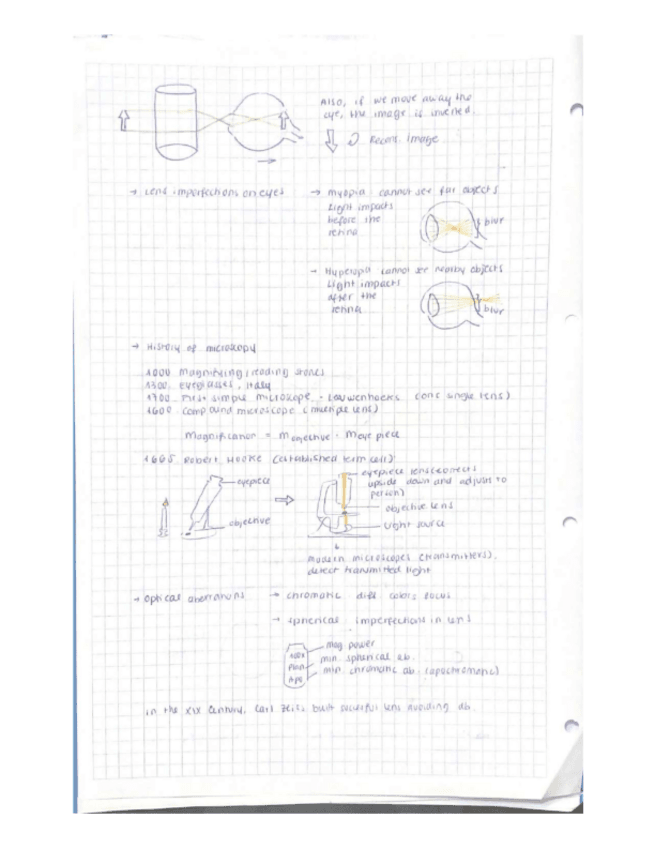 Also, if we move away the
eye, the image is inverted.
Recent. Image
→ Lens imperfections on eyes
→ myopia cannot see far objects
Light impacts
before the
retina
blur
→ Hyperopia cannot see nearby objects
Light impacts
after the
retina
blur
→ History of microscopy
1000 magnifying / reading stones
1300 eyeglasses, Italy
1700 first simple microscope - Leuwenhoecks (one single lens)
1600 compound microscope (multiple lens)
Magnification = Mobjective · Meye piece
1665 Robert Hooke (established term cell)
eyepiece
objective
eyepiece lens (corrects
upside down and adjusts to
person)
objective lens
Light source
modern microscopes (transmitters).
detect transmitted light
→ Optical aberrations
→ chromatic diff colors focus
→ spherical imperfections in lens
100x
Plan
Apo
mag. power
min. spherical ab.
min. chromatic ab. (apochromatic)
in the XIX Century, Carl Zeiss built powerful lens avoiding ab.